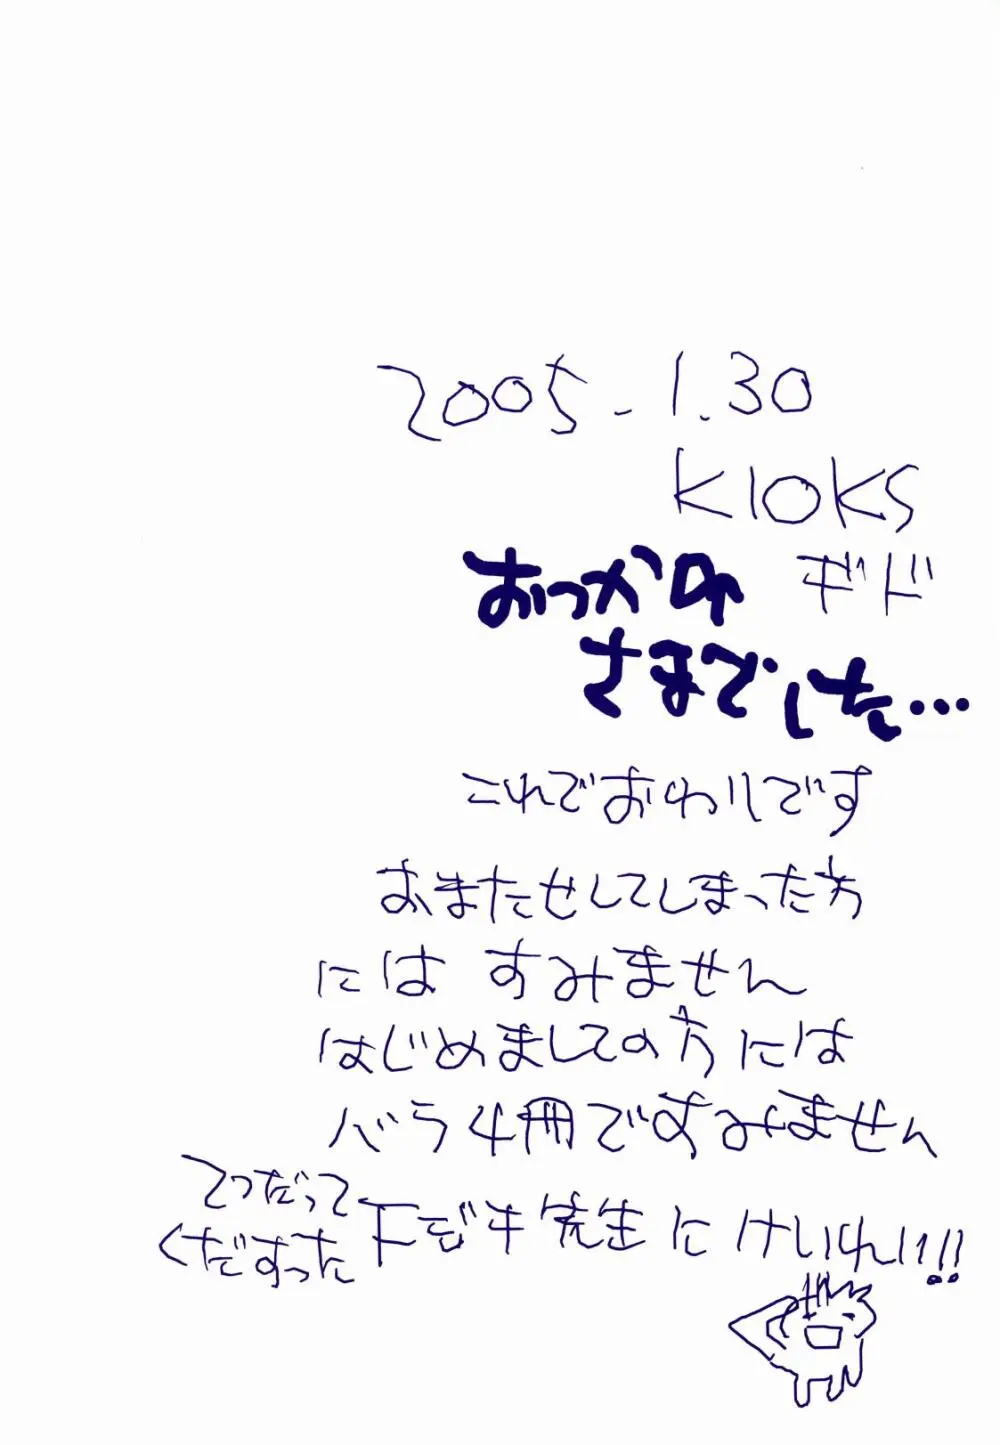 2005.1.30
KIOKS
ギド
おつかれ
さまでした…
これでおわりです
おまたせしてしまった方
には すみません
はじめましての方には
バラ4冊ですみません
てつだって
くだすった
下モジキ先生にけいれい!!